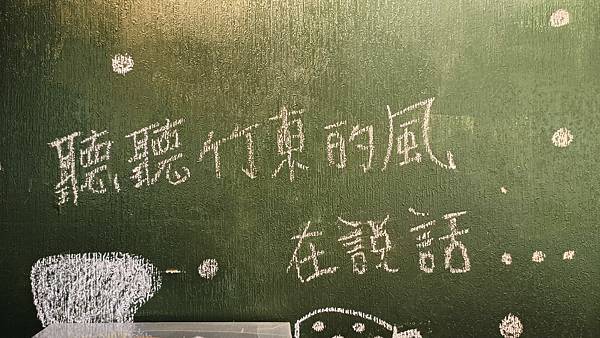 聽聽竹東的風
在說話...